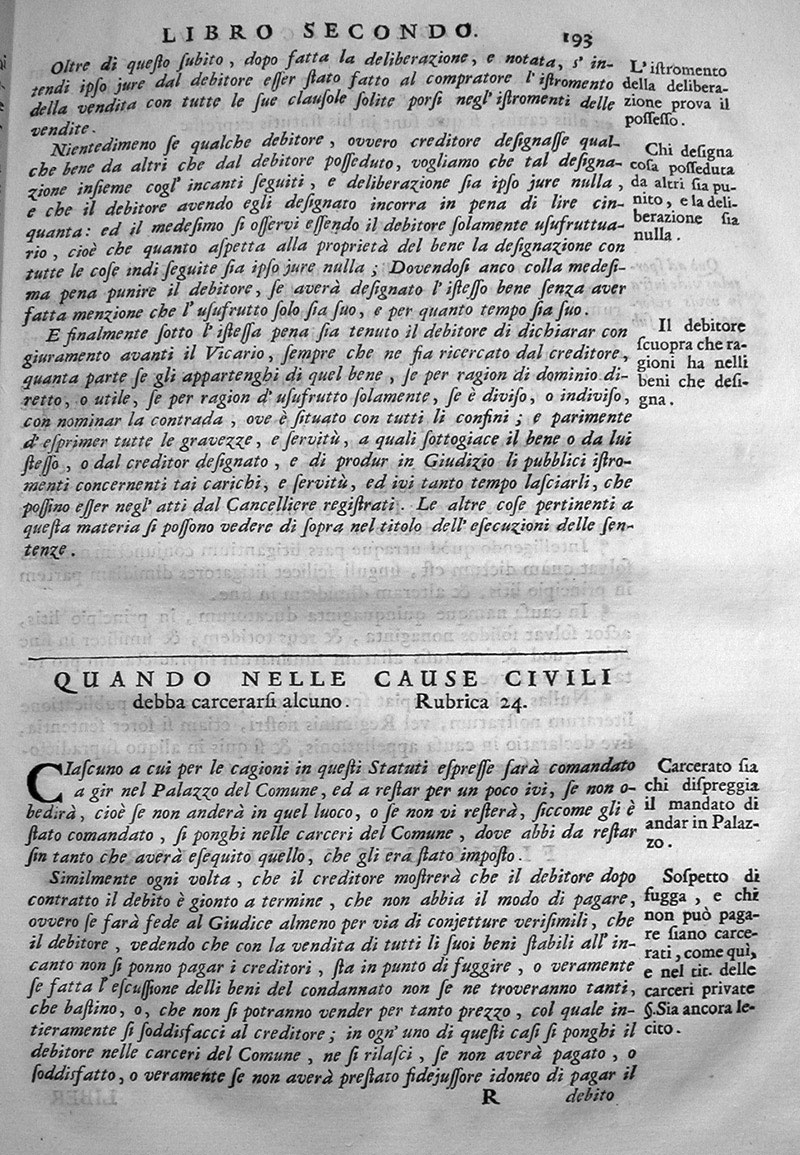 LIBRO SECONDO. 193
Oltre di queſto ſubito, dopo fatta la deliberazione, e notata, s'in-
tendi ipſo jure dal debitore eſſer ſtato fatto al compratore l'iſtromento
della vendita con tutte le ſue clauſole ſolite porſi negl'iſtromenti delle
vendite.
L'iſtromento
della delibera-
zione prova il
poſſeſſo.
Nientedimeno ſe qualche debitore, ovvero creditore deſignaſſe qual-
che bene da altri che dal debitore poſſeduto, vogliamo che tal deſigna-
zione inſieme cogl'incanti ſeguiti, e deliberazione ſia ipſo jure nulla,
e che il debitore avendo egli deſignato incorra in pena di lire cin-
quanta: ed il medeſimo ſi oſſervi eſſendo il debitore ſolamente uſufruttua-
rio, cioè che quanto aſpetta alla proprietà del bene la deſignazione con
tutte le coſe indi ſeguite ſia ipſo jure nulla; Dovendoſi anco colla medeſi-
ma pena punire il debitore, ſe averà deſignato l'iſteſſo bene ſenza aver
fatta menzione che l'uſufrutto ſolo ſia ſuo, e per quanto tempo ſia ſuo.
Chi deſigna
coſa poſſeduta
da altri ſia pu-
nito, e la deli-
berazione ſia
nulla.
E finalmente ſotto l'iſteſſa pena ſia tenuto il debitore di dichiarar con
giuramento avanti il Vicario, ſempre che ne ſia ricercato dal creditore,
quanta parte ſe gli appartenghi di quel bene, ſe per ragion di dominio di-
retto, o utile, ſe per ragion d'uſufrutto ſolamente, ſe è diviſo, o indiviſo,
con nominar la contrada, ove è ſituato con tutti li confini; e parimente
d'eſprimer tutte le gravezze, e ſervitù, a quali ſottogiace il bene o da lui
ſteſſo, o dal creditor deſignato, e di produr in Giudizio li pubblici iſtro-
menti concernenti tai carichi, e ſervitù, ed ivi tanto tempo laſciarli, che
poſſino eſſer negl'atti dal Cancelliere regiſtrati. Le altre coſe pertinenti a
queſta materia ſi poſſono vedere di ſopra nel titolo dell'eſecuzioni delle ſen-
tenze.
Il debitore
ſcuopra che ra-
gioni ha nelli
beni che deſi-
gna.
QUANDO NELLE CAUSE CIVILI
debba carcerarſi alcuno. Rubrica 24.
CIaſcuno a cui per le cagioni in queſti Statuti eſpreſſe ſarà comandato
a gir nel Palazzo del Comune, ed a reſtar per un poco ivi, ſe non o-
bedirà, cioè ſe non anderà in quel luoco, o ſe non vi reſterà, ſiccome gli è
ſtato comandato, ſi ponghi nelle carceri del Comune, dove abbi da reſtar
ſin tanto che averà eſequito quello, che gli era ſtato impoſto.
Carcerato ſia
chi diſpreggia
il mandato di
andar in Palaz-
zo.
Similmente ogni volta, che il creditore moſtrerà che il debitore dopo
contratto il debito è gionto a termine, che non abbia il modo di pagare,
ovvero ſe farà fede al Giudice almeno per via di conjetture veriſimili, che
il debitore, vedendo che con la vendita di tutti li ſuoi beni ſtabili all'in-
canto non ſi ponno pagar i creditori, ſta in punto di fuggire, o veramente
ſe fatta l'eſcuſſione delli beni del condannato non ſe ne troveranno tanti,
che baſtino, o, che non ſi potranno vender per tanto prezzo, col quale in-
tieramente ſi ſoddisfacci al creditore; in ogn'uno di queſti caſi ſi ponghi il
debitore nelle carceri del Comune, ne ſi rilaſci, ſe non averà pagato, o
ſoddisfatto, o veramente ſe non averà preſtato fidejuſſore idoneo di pagar il
Soſpetto di
fugga, e chi
non può paga-
re ſiano carce-
rati, come qui,
e nel tit. delle
carceri private
§. Sia ancora le-
cito.
R debito